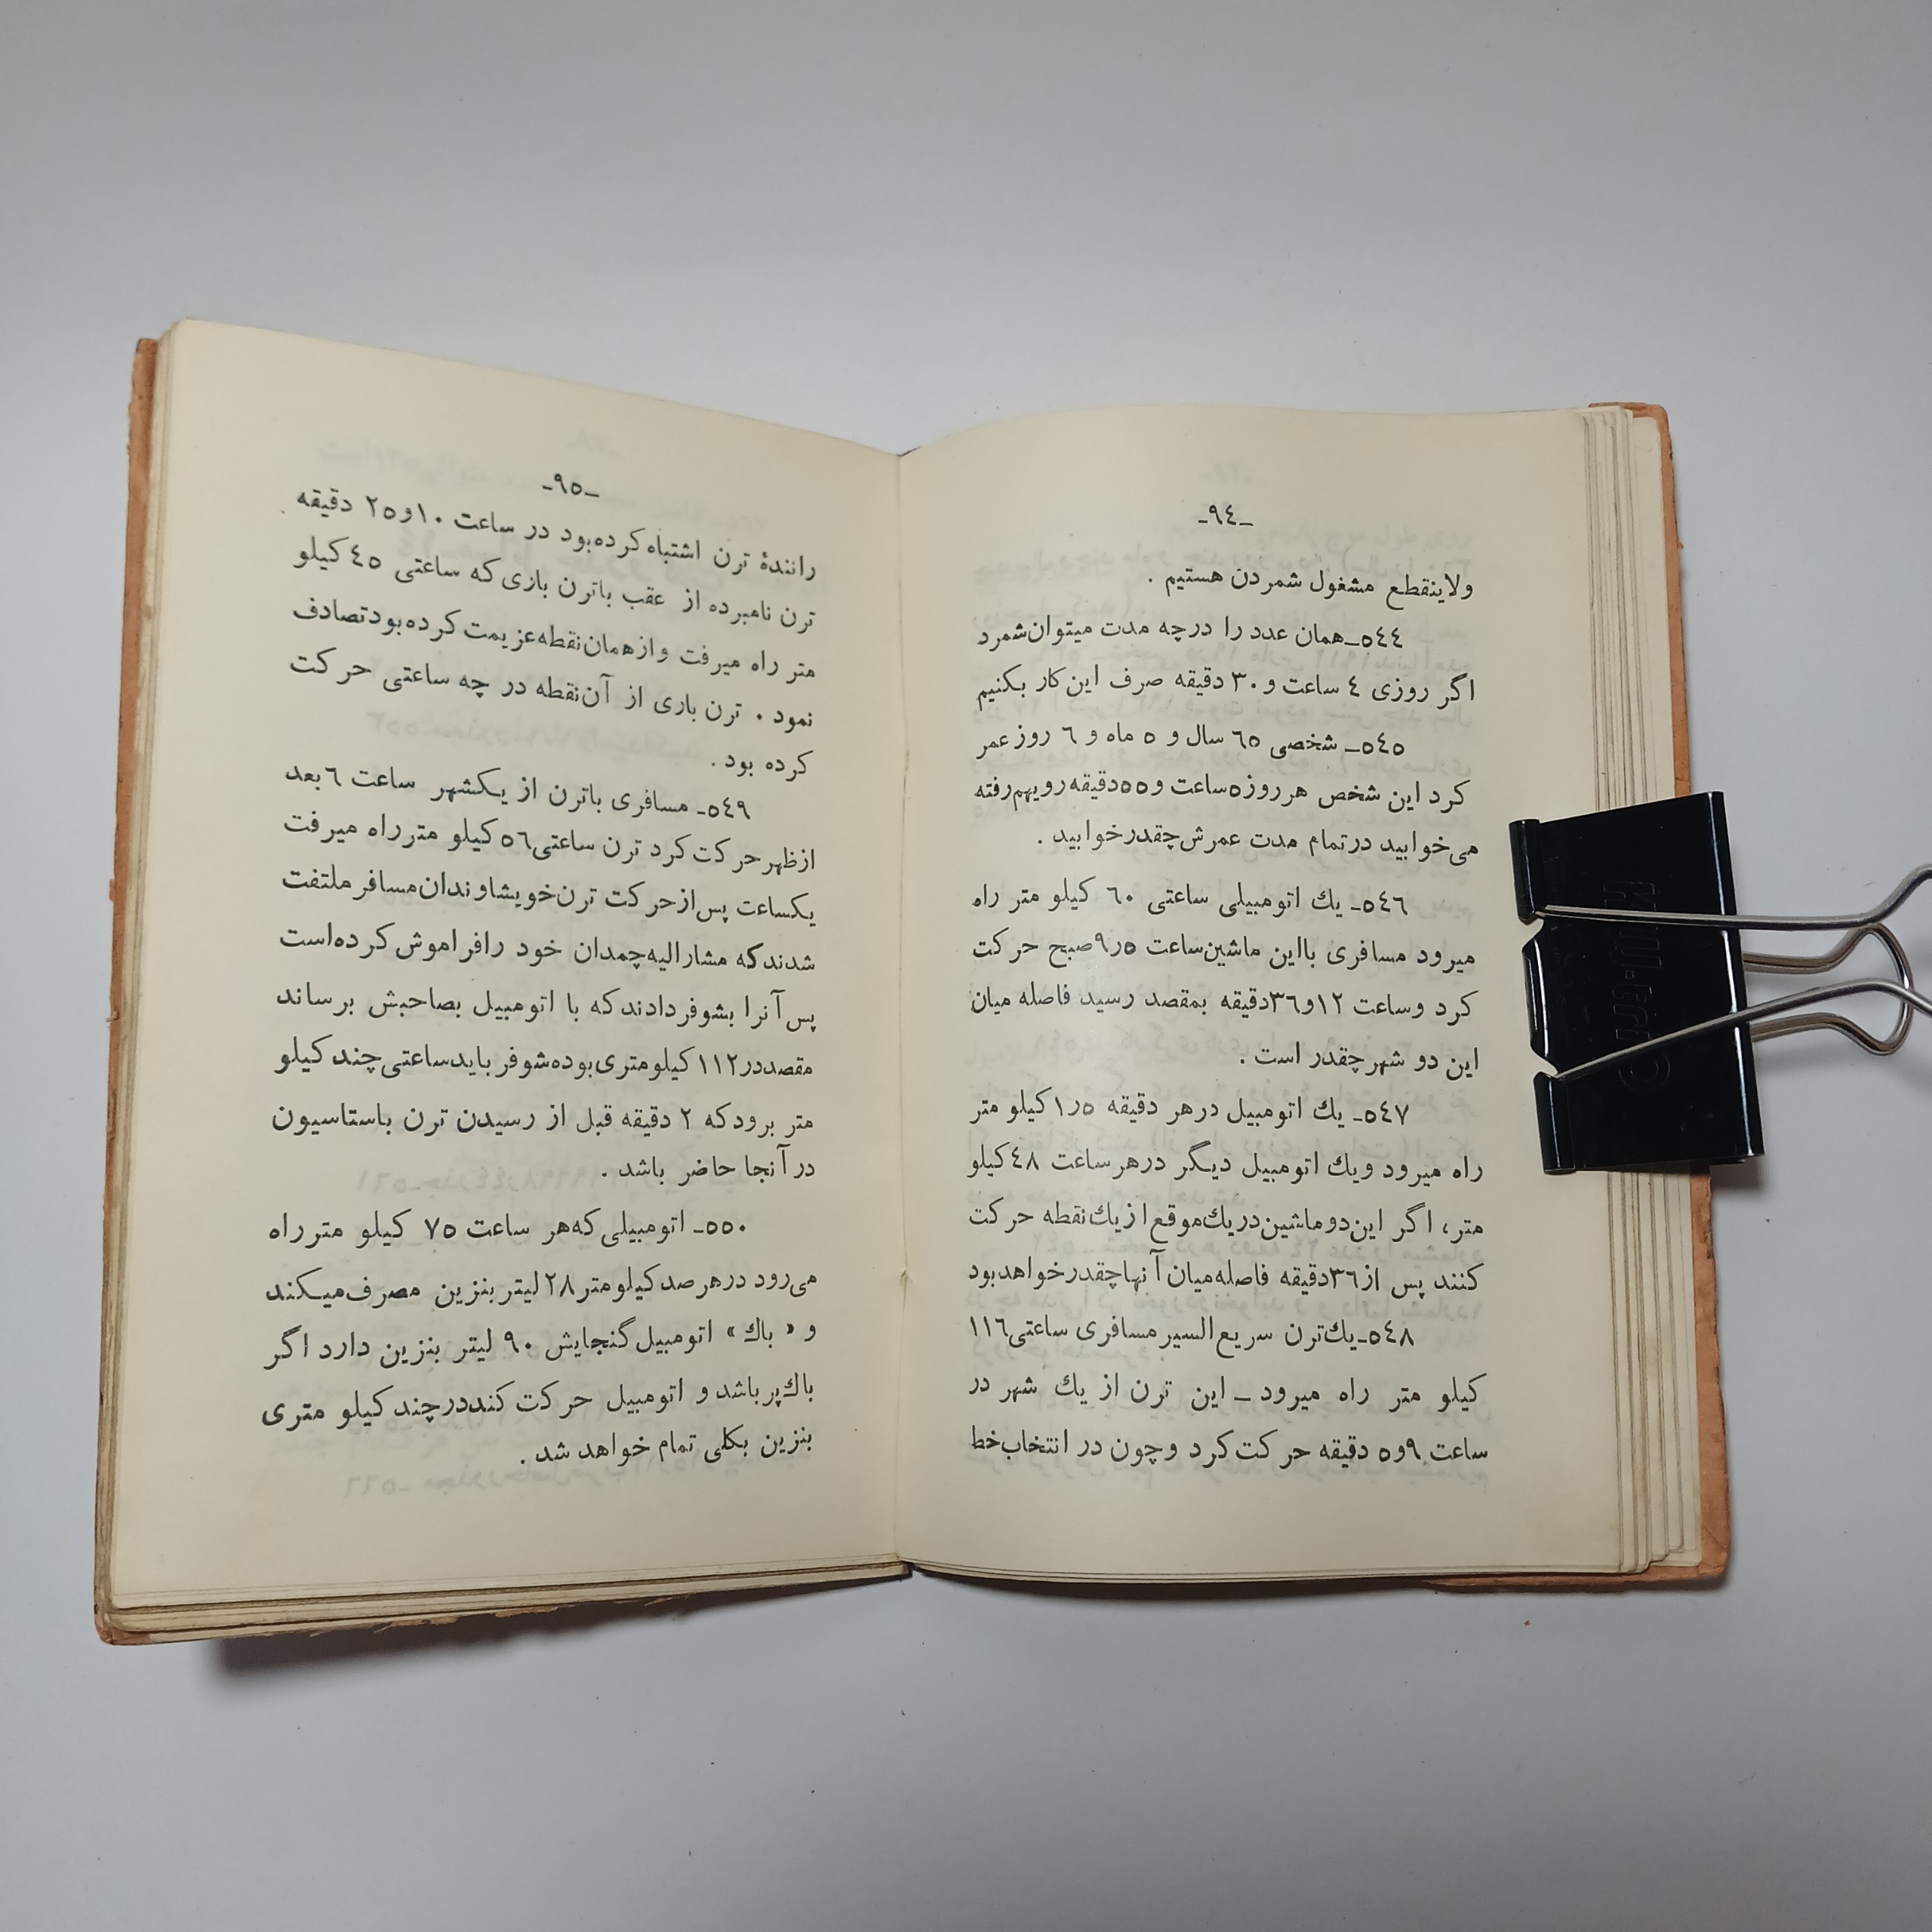 ـ٩٤ـ
ولاینقطع مشغول شمردن هستیم .
٥٤٤ـ همان عدد را درچه مدت میتوان شمرد
اگر روزی ٤ ساعت و ٣٠ دقیقه صرف این کار بکنیم
٥٤٥ـ شخصی ٦٥ سال و ٥ ماه و ٦ روز عمر
کرد این شخص هر روز ٥ ساعت و ٥٥ دقیقه رویهم رفته
می خوابید در تمام مدت عمرش چقدر خوابید .
٥٤٦ـ یك اتومبیلی ساعتی ٦٠ کیلو متر راه
میرود مسافری بااین ماشین ساعت ٩٫٥ صبح حرکت
کرد وساعت ١٢ و ٣٦ دقیقه بمقصد رسید فاصله میان
این دو شهر چقدر است .
٥٤٧ـ یك اتومبیل درهر دقیقه ١٫٥ کیلو متر
راه میرود ویك اتومبیل دیگر درهر ساعت ٤٨ کیلو
متر، اگر این دو ماشین در یك موقع از یك نقطه حرکت
کنند پس از ٣٦ دقیقه فاصله میان آنها چقدر خواهد بود
٥٤٨ـ یك ترن سریع السیر مسافری ساعتی ١١٦
کیلو متر راه میرود ـ این ترن از یك شهر در
ساعت ٩ و ٥ دقیقه حرکت کرد و چون در انتخاب خط
ـ٩٥ـ
رانندهٔ ترن اشتباه کرده بود در ساعت ١٠ و ٢٥ دقیقه
ترن نامبرده از عقب باترن باری که ساعتی ٤٥ کیلو
متر راه میرفت و از همان نقطه عزیمت کرده بود تصادف
نمود . ترن باری از آن نقطه در چه ساعتی حرکت
کرده بود .
٥٤٩ـ مسافری باترن از یکشهر ساعت ٦ بعد
از ظهر حرکت کرد ترن ساعتی ٥٦ کیلو متر راه میرفت
یکساعت پس از حرکت ترن خویشاوندان مسافر ملتفت
شدند که مشارالیه چمدان خود را فراموش کرده است
پس آنرا بشوفر دادند که با اتومبیل بصاحبش برساند
مقصد در ١١٢ کیلو متری بوده شوفر باید ساعتی چند کیلو
متر برود که ٢ دقیقه قبل از رسیدن ترن باستاسیون
در آنجا حاضر باشد .
٥٥٠ـ اتومبیلی که هر ساعت ٧٥ کیلو متر راه
می رود درهر صد کیلو متر ٢٨ لیتر بنزین مصرف میکند
و « باك » اتومبیل گنجایش ٩٠ لیتر بنزین دارد اگر
باك پر باشد و اتومبیل حرکت کند در چند کیلو متری
بنزین بکلی تمام خواهد شد .